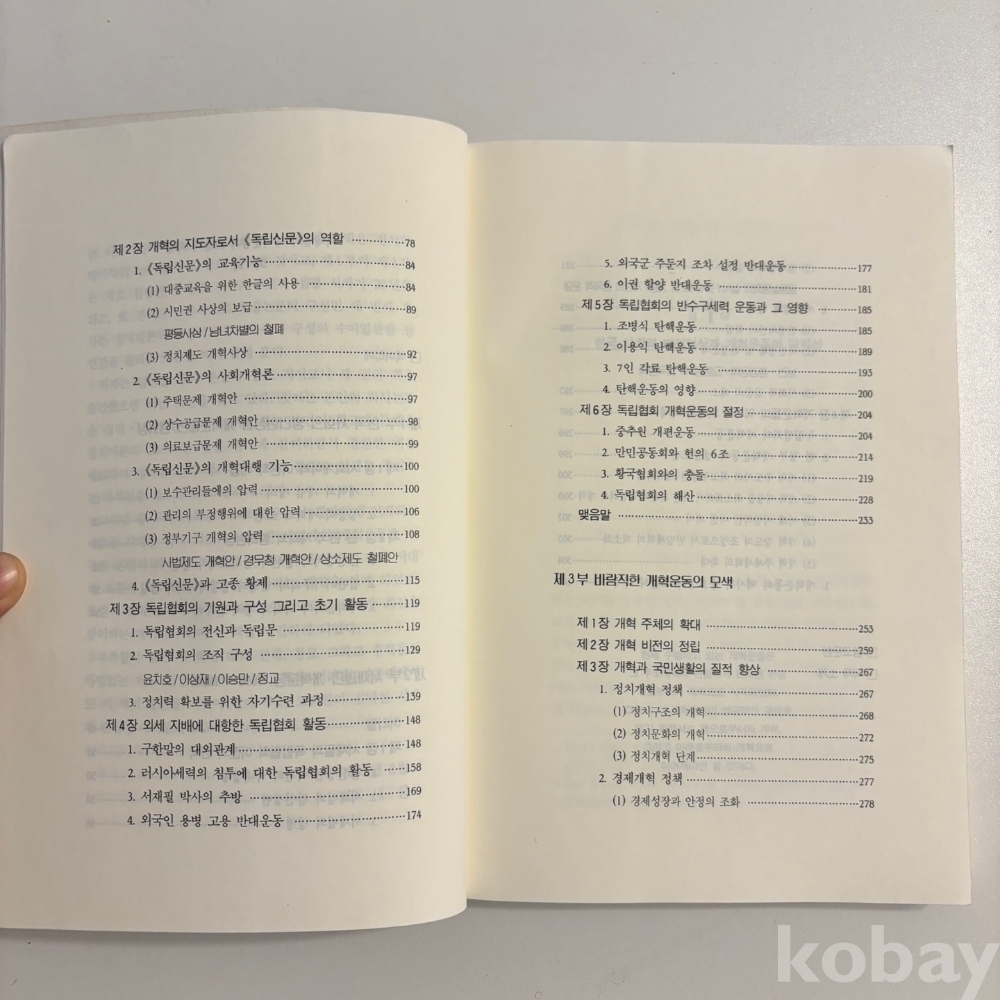 제2장 개혁의 지도자로서 《독립신문》의 역할 ……………78
1. 《독립신문》의 교육기능 ……………84
(1) 대중교육을 위한 한글의 사용 ……………84
(2) 시민권 사상의 보급 ……………89
평등사상/남녀차별의 철폐
(3) 정치제도 개혁사상 ……………92
2. 《독립신문》의 사회개혁론 ……………97
(1) 주택문제 개혁안 ……………97
(2) 상수공급문제 개혁안 ……………98
(3) 의료보급문제 개혁안 ……………99
3. 《독립신문》의 개혁대행 기능 ……………100
(1) 보수관리들에의 압력 ……………100
(2) 관리의 부정행위에 대한 압력 ……………106
(3) 정부기구 개혁의 압력 ……………108
사법제도 개혁안/경무청 개혁안/상소제도 철폐안
4. 《독립신문》과 고종 황제 ……………115
제3장 독립협회의 기원과 구성 그리고 초기 활동 ……………119
1. 독립협회의 전신과 독립문 ……………119
2. 독립협회의 조직 구성 ……………129
윤치호/이상재/이승만/정교
3. 정치력 확보를 위한 자기수련 과정 ……………139
제4장 외세 지배에 대항한 독립협회 활동 ……………148
1. 구한말의 대외관계 ……………148
2. 러시아세력의 침투에 대한 독립협회의 활동 ……………158
3. 서재필 박사의 추방 ……………169
4. 외국인 용병 고용 반대운동 ……………174
5. 외국군 주둔지 조차 설정 반대운동 ……………177
6. 이권 할양 반대운동 ……………181
제5장 독립협회의 반수구세력 운동과 그 영향 ……………185
1. 조병식 탄핵운동 ……………185
2. 이용익 탄핵운동 ……………189
3. 7인 각료 탄핵운동 ……………193
4. 탄핵운동의 영향 ……………200
제6장 독립협회 개혁운동의 절정 ……………204
1. 중추원 개편운동 ……………204
2. 만민공동회와 헌의 6조 ……………214
3. 황국협회와의 충돌 ……………219
4. 독립협회의 해산 ……………228
맺음말 ……………233
제3부 바람직한 개혁운동의 모색
제1장 개혁 주체의 확대 ……………253
제2장 개혁 비전의 정립 ……………259
제3장 개혁과 국민생활의 질적 향상 ……………267
1. 정치개혁 정책 ……………267
(1) 정치구조의 개혁 ……………268
(2) 정치문화의 개혁 ……………272
(3) 정치개혁 단계 ……………275
2. 경제개혁 정책 ……………277
(1) 경제성장과 안정의 조화 ……………278
kobay